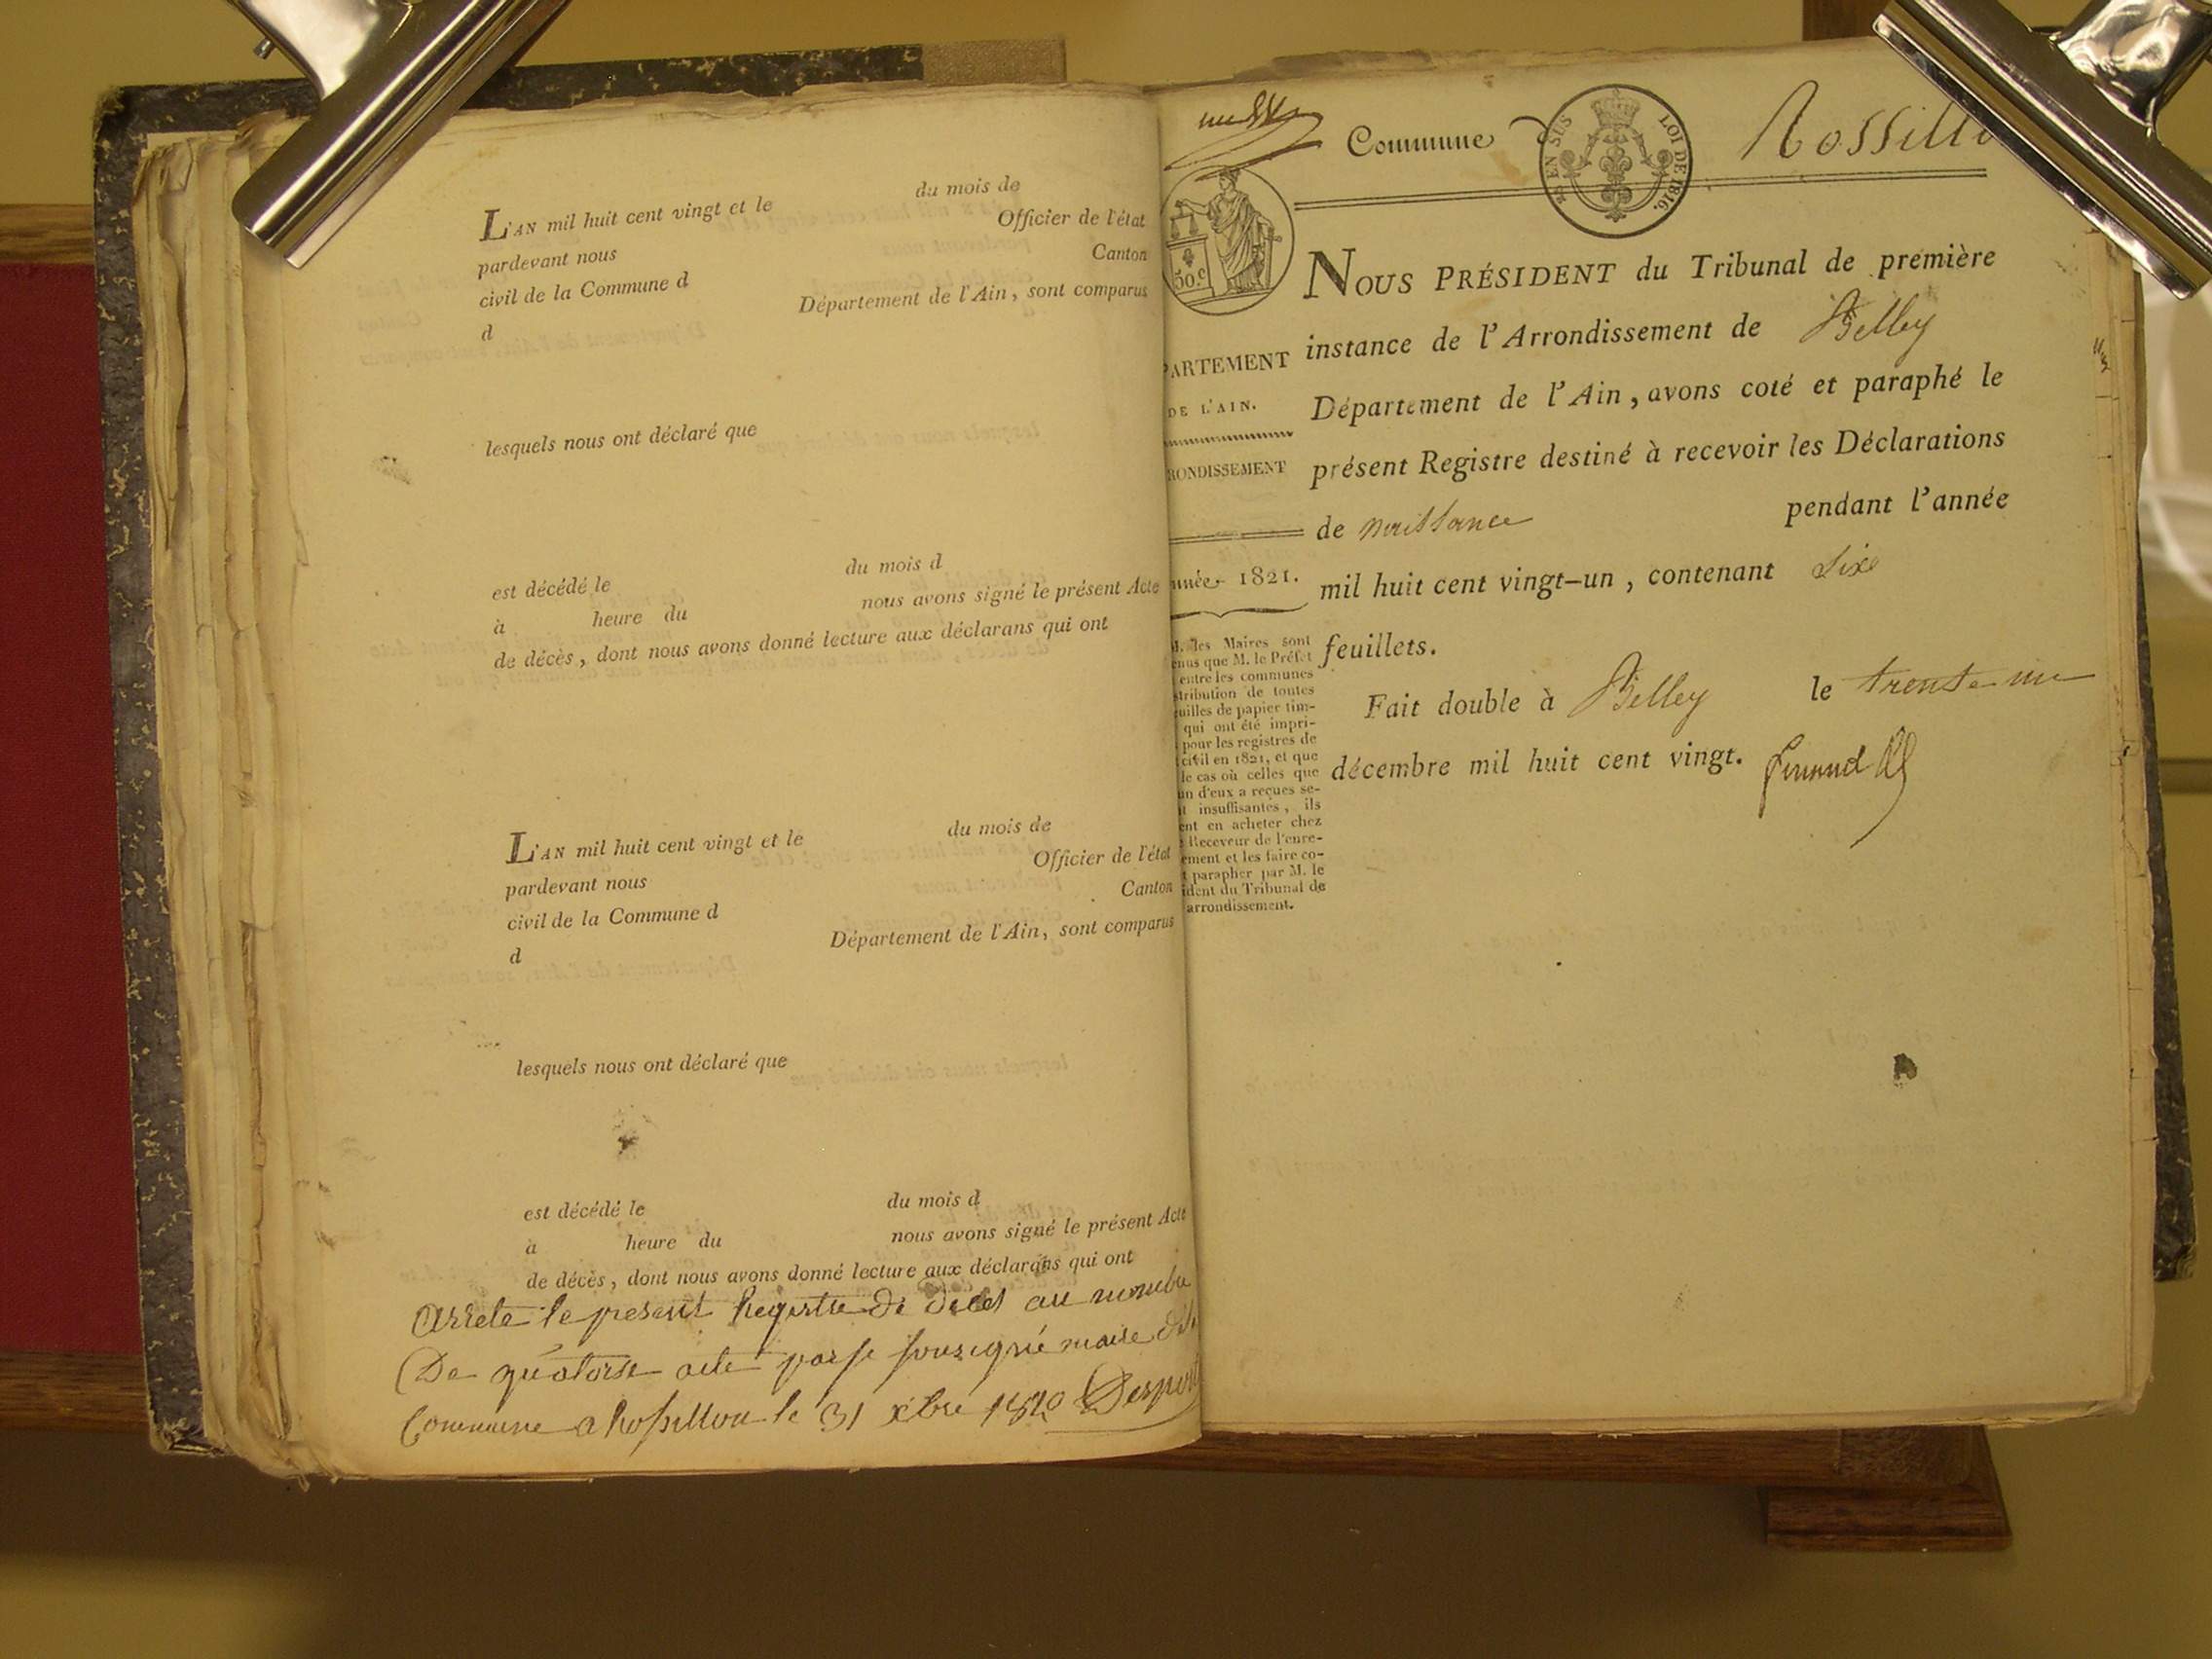 du mois de
L'AN mil huit cent vingt et le
Officier de l'état
pardevant nous
Canton
civil de la Commune d
Département de l'Ain, sont comparus
d
lesquels nous ont déclaré que
est décédé le du mois d
à heure du nous avons signé le présent Acte
de décès, dont nous avons donné lecture aux déclarans qui ont
du mois de
L'AN mil huit cent vingt et le
Officier de l'état
pardevant nous
Canton
civil de la Commune d
Département de l'Ain, sont comparus
d
lesquels nous ont déclaré que
est décédé le du mois d
à heure du nous avons signé le présent Acte
de décès, dont nous avons donné lecture aux déclarans qui ont
Arrete le present Registre de deces au nombre
De quatorse acte par le sousigné maire
Commune a Rossillon le 31 xbre 1820
Commune Rossillo
EN SUS LOI DE 1816.
50.c
NOUS PRÉSIDENT du Tribunal de première
instance de l'Arrondissement de Belley
Département de l'Ain, avons coté et paraphé le
présent Registre destiné à recevoir les Déclarations
de naissance pendant l'année
mil huit cent vingt-un, contenant Sixe
feuillets.
Fait double à Belley le trente un
décembre mil huit cent vingt.
PARTEMENT
DE L'AIN.
RONDISSEMENT
nnée 1821.
M. les Maires sont
enus que M. le Préfet
entre les communes
stribution de toutes
uilles de papier tim-
qui ont été impri-
pour les registres de
civil en 1821, et que
le cas où celles que
un d'eux a reçues se-
t insuffisantes, ils
ent en acheter chez
Receveur de l'enre-
ement et les faire co-
t parapher par M. le
ident du Tribunal de
arrondissement.